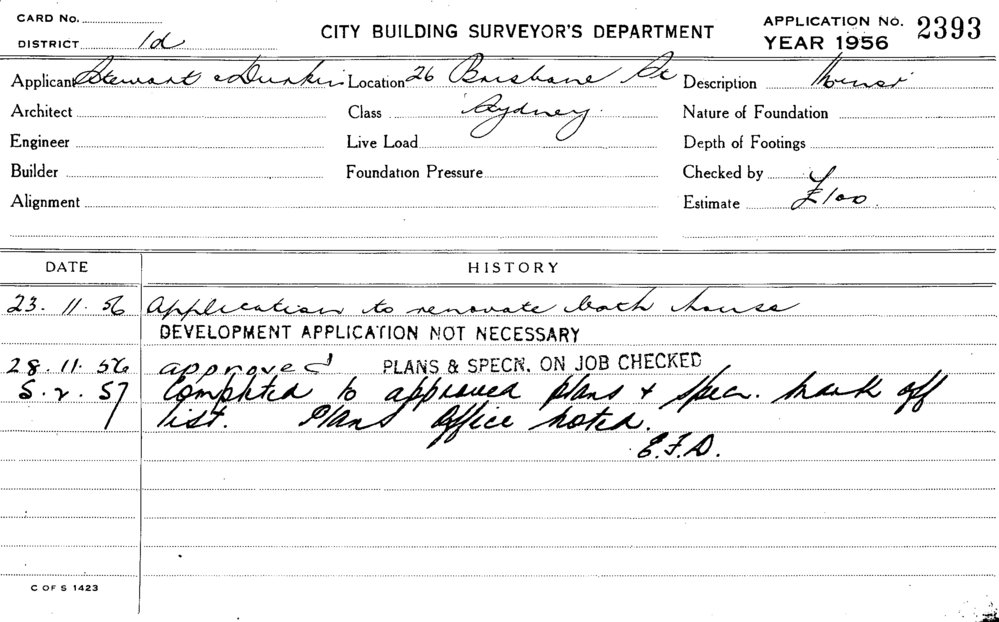 CARD No.
DISTRICT 1d
CITY BUILDING SURVEYOR'S DEPARTMENT
APPLICATION No. 2393
YEAR 1956
Applicant Stewart & Dunkin Location 26 Brisbane St Description House
Architect Class Sydney Nature of Foundation
Engineer Live Load Depth of Footings
Builder Foundation Pressure Checked by
Alignment Estimate £100
DATE HISTORY
23. 11. 56 Application to renovate bath house
DEVELOPMENT APPLICATION NOT NECESSARY
28. 11. 56 approved PLANS & SPECN. ON JOB CHECKED
5. 2. 57 Completed to approved plans + specn. mark off
list. Plans Office noted.
E.F.D.
C OF S 1423